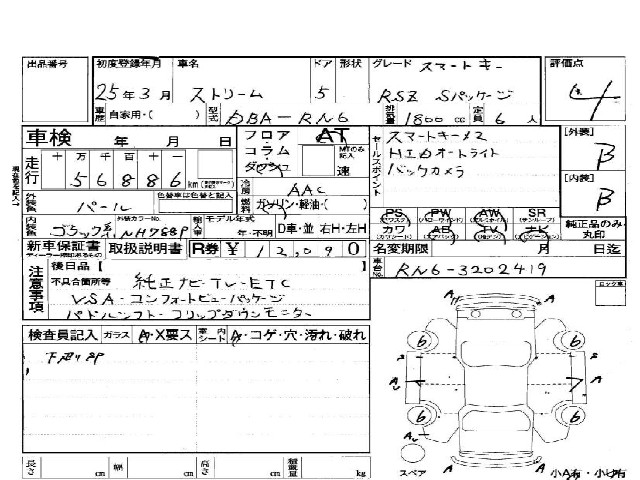 出品番号
初度登録年月 車名 ドア 形状 グレード スマートキー 評価点
25年3月 ストリーム 5 RSZ Sパッケージ 4
車歴 自家用・( ) 型式 DBA-RN6 排気量 1800 cc 定員 6 人
車検 年 月 日
フロア・コラム・ダッシュ AT MTのみ記入 速
セールスポイント スマートキー×2
HIDオートライト
バックカメラ
[外装] B
[内装] B
走行 十 万 千 百 十 一
5 6 8 8 6 km
冷房 AAC
外装色 パール 色替車は色替と記入
燃料 ガソリン・軽油・( )
内装色 ブラック系 外装カラーNo. NH788P 輸入車 モデル年式 年・不明 D車・並 右H・左H
PS PW AW SR
カワ AB TV ナビ
純正品のみ丸印
新車保証書 取扱説明書 R券 ¥ 12,090
名変期限 月 日迄
車台No. RN6-3202419
注意事項 後日品【 】
不具合箇所等 純正ナビ-TV-ETC
VSA・コンフォートビューパッケージ
パドルシフト・フリップダウンモニター
検査員記入 ガラス A・X要ス 室内シート A・コゲ・穴・汚れ・破れ
下廻りSP
ロック車
A
6 6
A A
6 6
A
A
スペア
長さ cm 幅 cm 高さ cm 積載量 kg
小A有・小U有